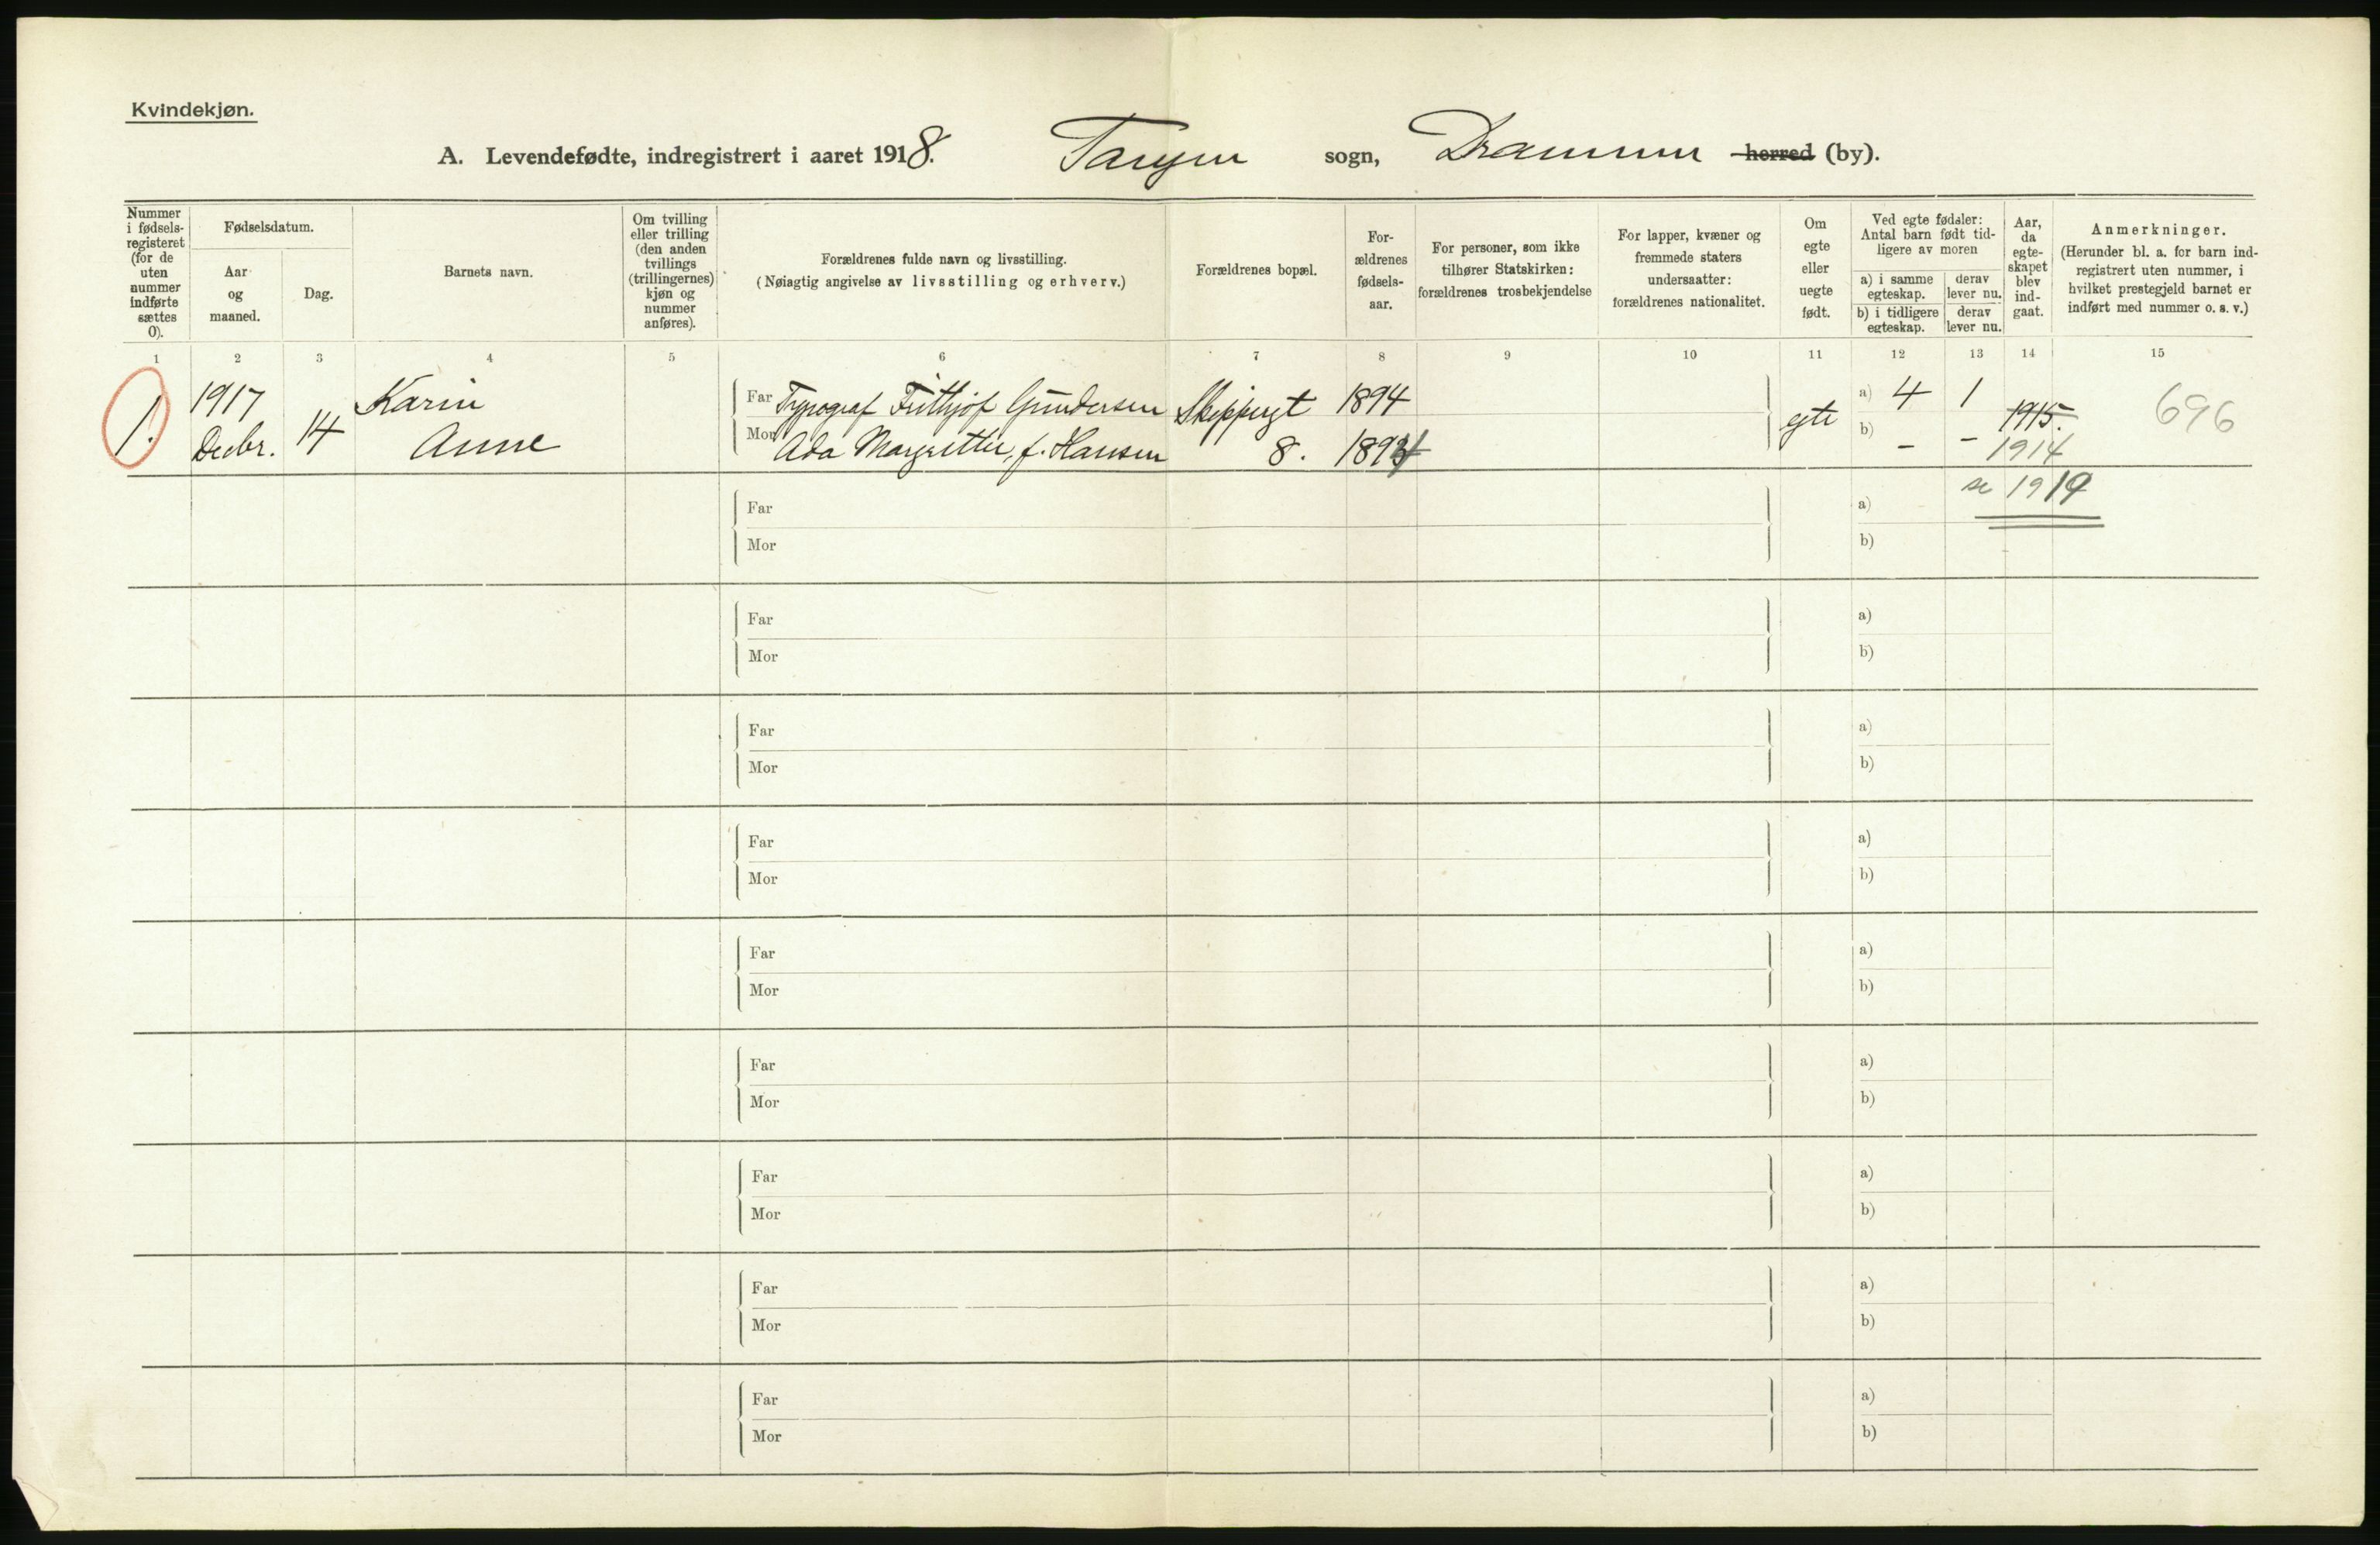 Kvindekjøn.
A. Levendefødte, indregistrert i aaret 1918. Tangen sogn, Drammen herred (by).
Nummer i fødsels-registeret (for de uten nummer indførte sættes 0).
Fødselsdatum.
Aar og maaned.
Dag.
Barnets navn.
Om tvilling eller trilling (den anden tvillings (trillingernes) kjøn og nummer anføres).
Forældrenes fulde navn og livsstilling.
(Nøiagtig angivelse av livsstilling og erhverv.)
Forældrenes bopæl.
For-ældrenes fødsels-aar.
For personer, som ikke tilhører Statskirken: forældrenes trosbekjendelse
For lapper, kvæner og fremmede staters undersaatter: forældrenes nationalitet.
Om egte eller uegte født.
Ved egte fødsler: Antal barn født tid-ligere av moren
a) i samme egteskap.
derav lever nu.
b) i tidligere egteskap.
derav lever nu.
Aar, da egte-skapet blev ind-gaat.
Anmerkninger.
(Herunder bl. a. for barn ind-registrert uten nummer, i hvilket prestegjeld barnet er indført med nummer o. s. v.)
1 2 3 4 5 6 7 8 9 10 11 12 13 14 15
1. 1917 Decbr. 14 Karin Anne
Far Typograf Frithjof Gundersen Skippergt 1894
Mor Ada Margrethe, f. Hansen 8. 1894
egte a) 4 1 1915. 696
b) - - 1914
se 1919
Far a)
Mor b)
Far a)
Mor b)
Far a)
Mor b)
Far a)
Mor b)
Far a)
Mor b)
Far a)
Mor b)
Far a)
Mor b)
Far a)
Mor b)
Far a)
Mor b)